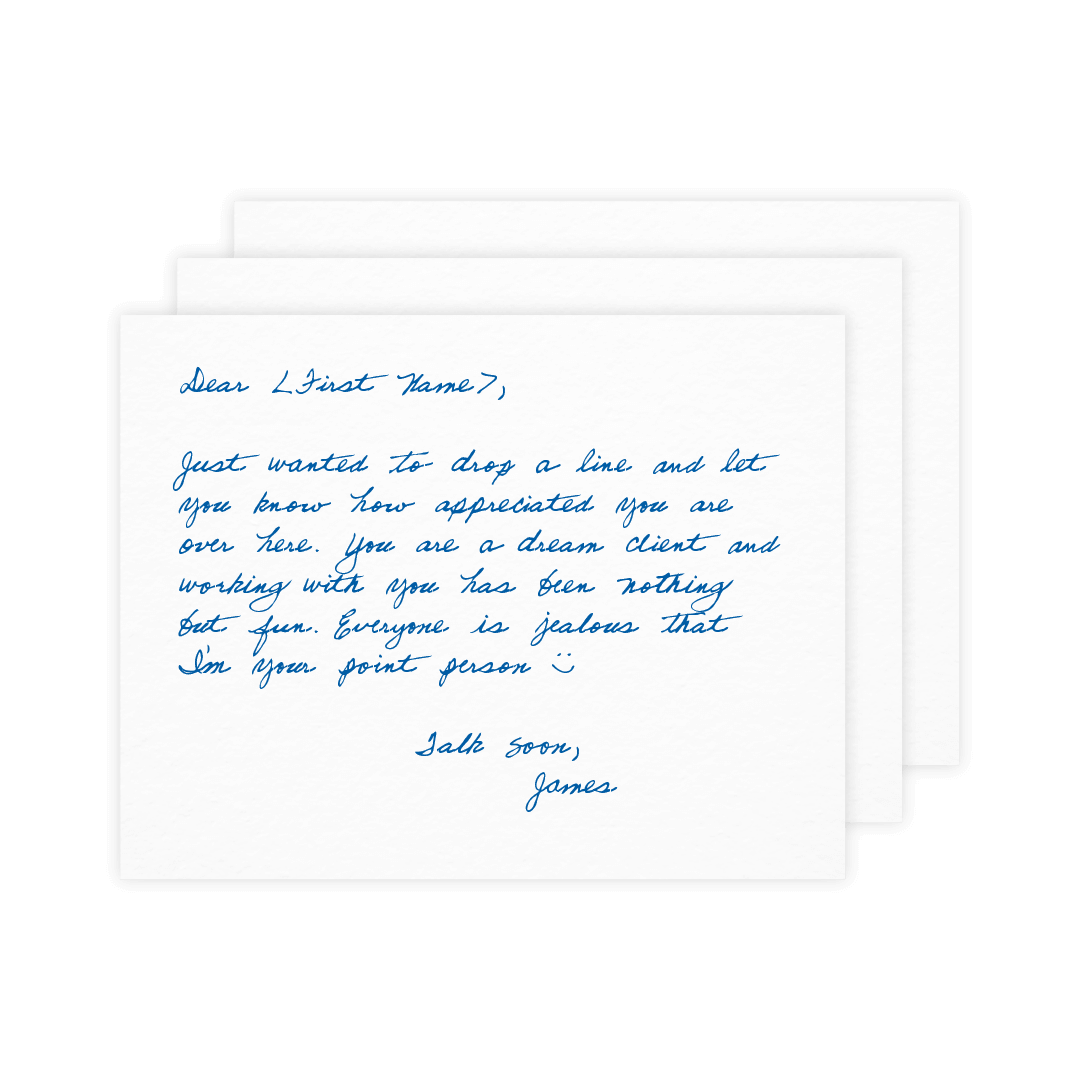 Dear <First Name>,
Just wanted to drop a line and let
you know how appreciated you are
over here. You are a dream client and
working with you has been nothing
but fun. Everyone is jealous that
I'm your point person :)
Talk soon,
James